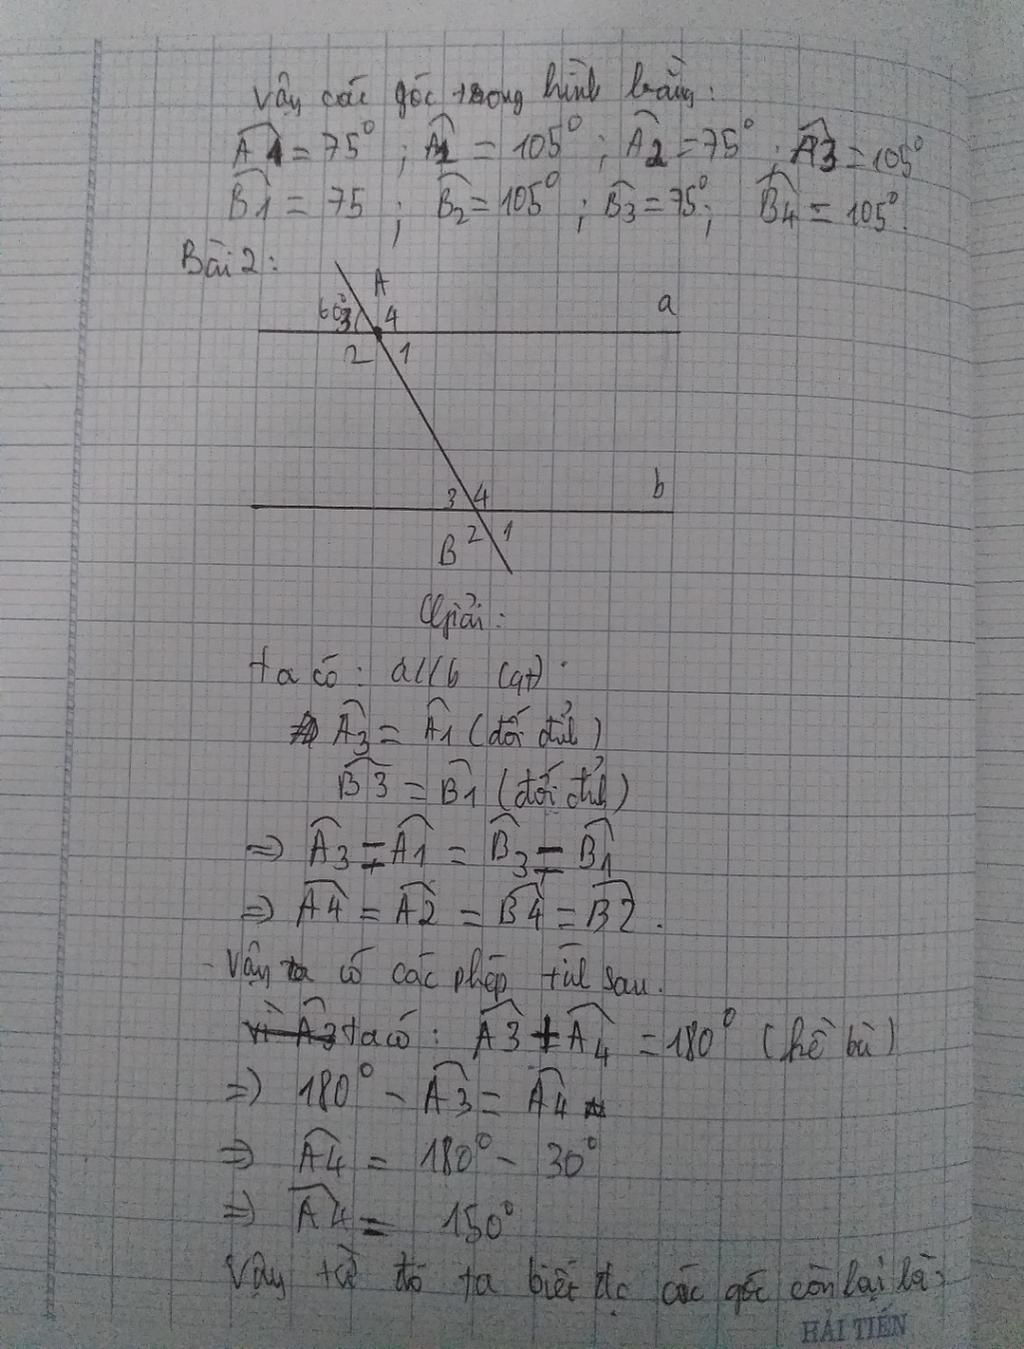 Vậy các góc trong hình bằng:
A1 = 75° ; A1 = 105° ; A2 = 75° ; A3 = 105°
B1 = 75 ; B2 = 105° ; B3 = 75° ; B4 = 105°.
Bài 2:
A
60°
3 4
a
2 1
3 4
b
B 2 1
Giải:
ta có: a//b (gt).
A3 = A1 (đối đỉnh)
B3 = B1 (đối đỉnh)
=> A3 = A1 = B3 = B1
=> A4 = A2 = B4 = B2.
- Vậy ta có các phép tính sau.
Vì A3 ta có: A3 + A4 = 180° (kề bù)
=> 180° - A3 = A4
=> A4 = 180° - 30°
=> A4 = 150°
Vậy từ đó ta biết đc các góc còn lại là:
HẢI TIẾN